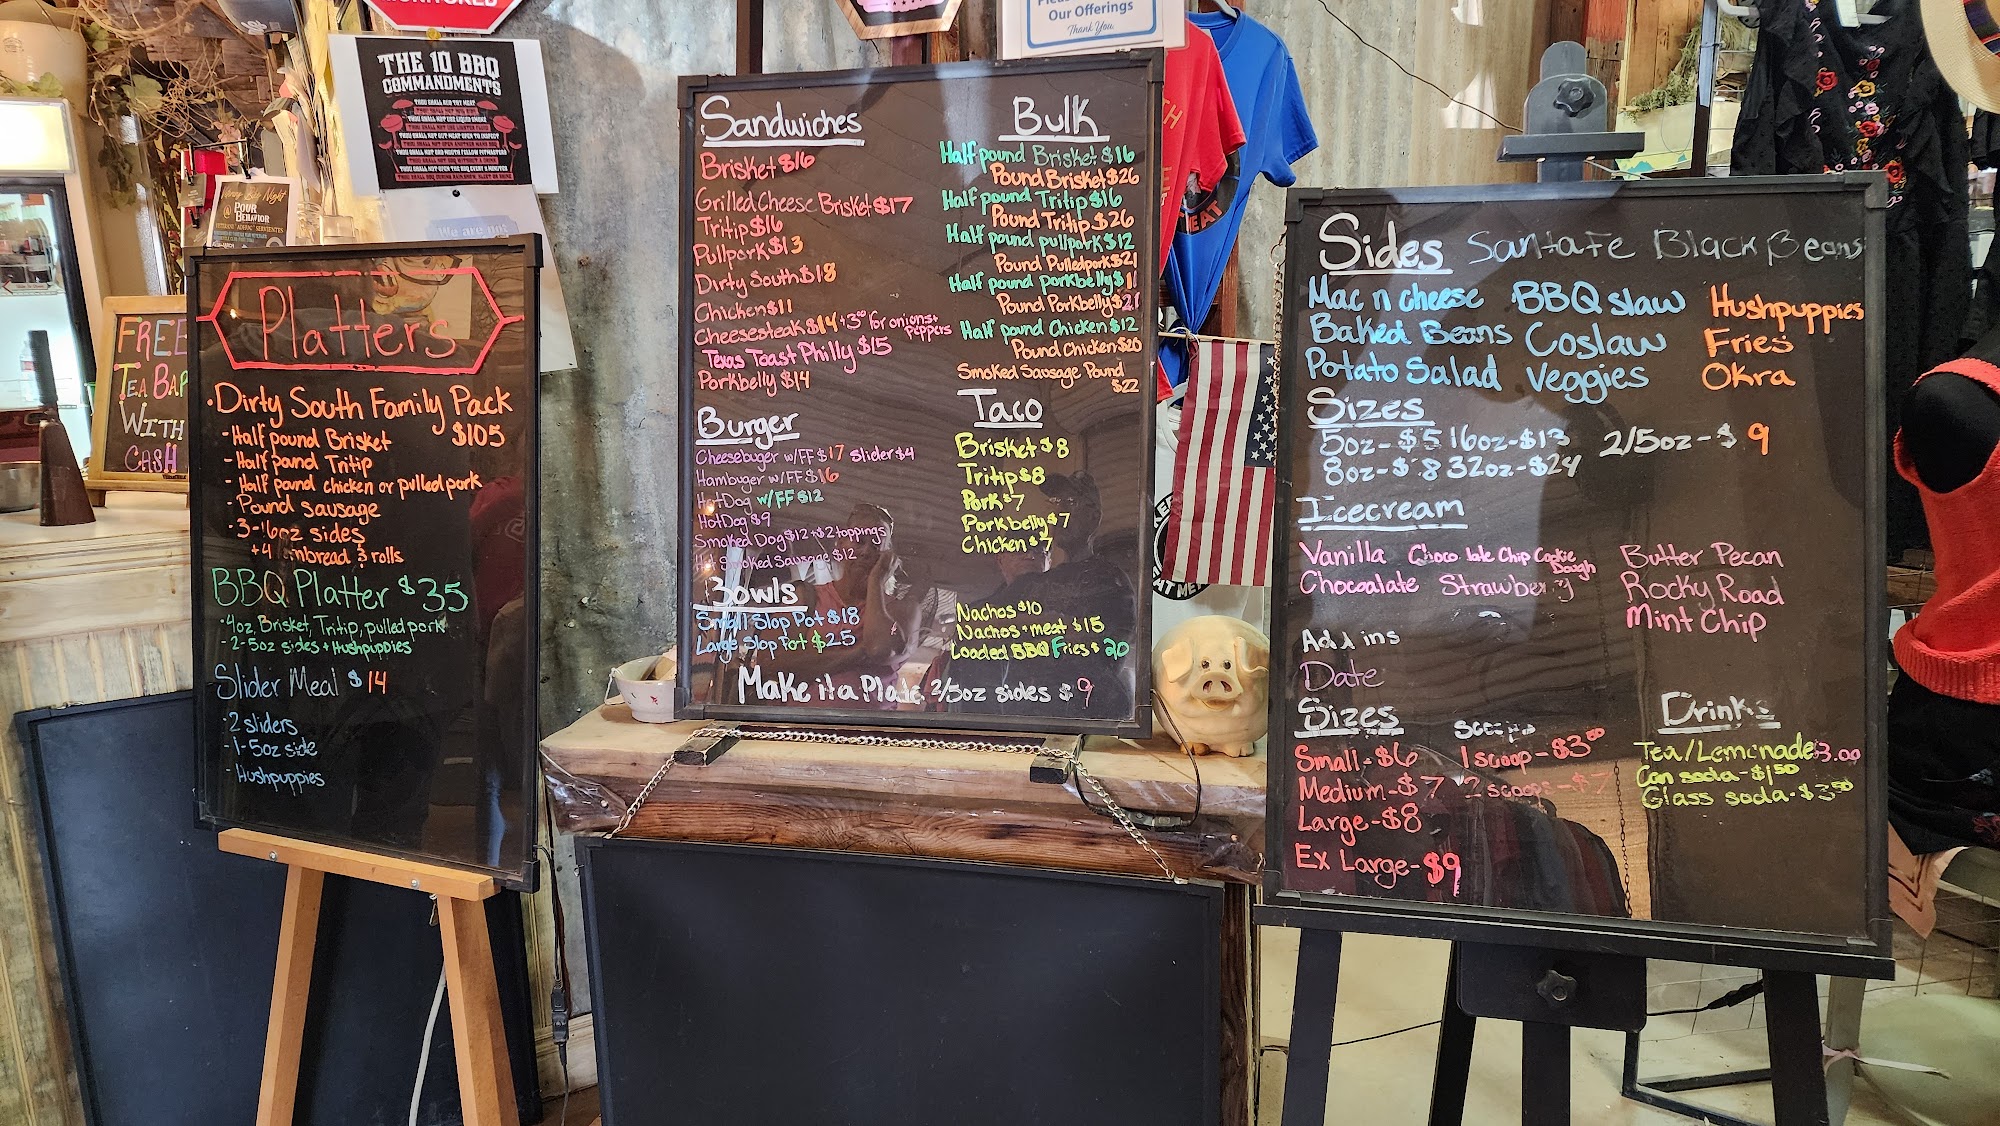 MONITORED
THE 10 BBQ
COMMANDMENTS
THOU SHALL NOT USE LIQUID SMOKE
THOU SHALL NOT USE LIGHTER FLUID
THOU SHALL NOT BBQ WITHOUT A DRINK
We are not
Our Offerings
Thank You
@ POUR
BEHAVIOR
FREE
TEA BAR
WITH
CASH
Platters
• Dirty South Family Pack
$105
- Half pound Brisket
- Half pound Tritip
- Half pound chicken or pulled pork
- Pound sausage
- 3-16oz sides
+4 rnbread & rolls
BBQ Platter $35
• 4oz, Brisket, Tritip, pulled pork
- 2-5oz sides + Hushpuppies
Slider Meal $14
- 2 sliders
- 1-5oz side
- Hushpuppies
Sandwiches
Brisket $16
Grilled Cheese Brisket $17
Tritip $16
Pullpork $13
Dirty South $18
Chicken $11
Cheesesteak $14 +3.00 for onions+ Peppers
Texas Toast Philly $15
Porkbelly $14
Burger
Cheesebuger w/FF $17 Slider $4
Hambuger w/FF $16
HotDog w/FF $12
HotDog $9
Smoked Dog $12 +$2 toppings
Hot Smoked Sausage $12
Bowls
Small Slop Pot $18
Large Slop Pot $25
Bulk
Half pound Brisket $16
Pound Brisket $26
Half pound Tritip $16
Pound Tritip $26
Half pound pullpork $12
Pound Pulledpork $21
Half pound Porkbelly $11
Pound Porkbelly $21
Half pound Chicken $12
Pound Chicken $20
Smoked Sausage Pound
$22
Taco
Brisket $8
Tritip $8
Pork $7
Porkbelly $7
Chicken $7
Nachos $10
Nachos + meat $15
Loaded BBQ Fries $20
Make it a Plate 2/5oz sides $9
Sides Santa Fe Black Beans
Mac n cheese BBQ slaw Hushpuppies
Baked Beans Coslaw Fries
Potato Salad Veggies Okra
Sizes
5oz - $5 16oz - $13 2/5oz - $9
8oz - $8 32oz - $24
Icecream
Vanilla Chocolate Chip Cookie Dough Butter Pecan
Chocoalate Strawberry Rocky Road
Mint Chip
Add ins
Date
Sizes Scoops
Small - $6 1 scoop - $3.00
Medium - $7 2 scoops - $7
Large - $8
Ex Large - $9
Drinks
Tea/Lemonade 3.00
Can soda - $1.50
Glass soda - $3.50